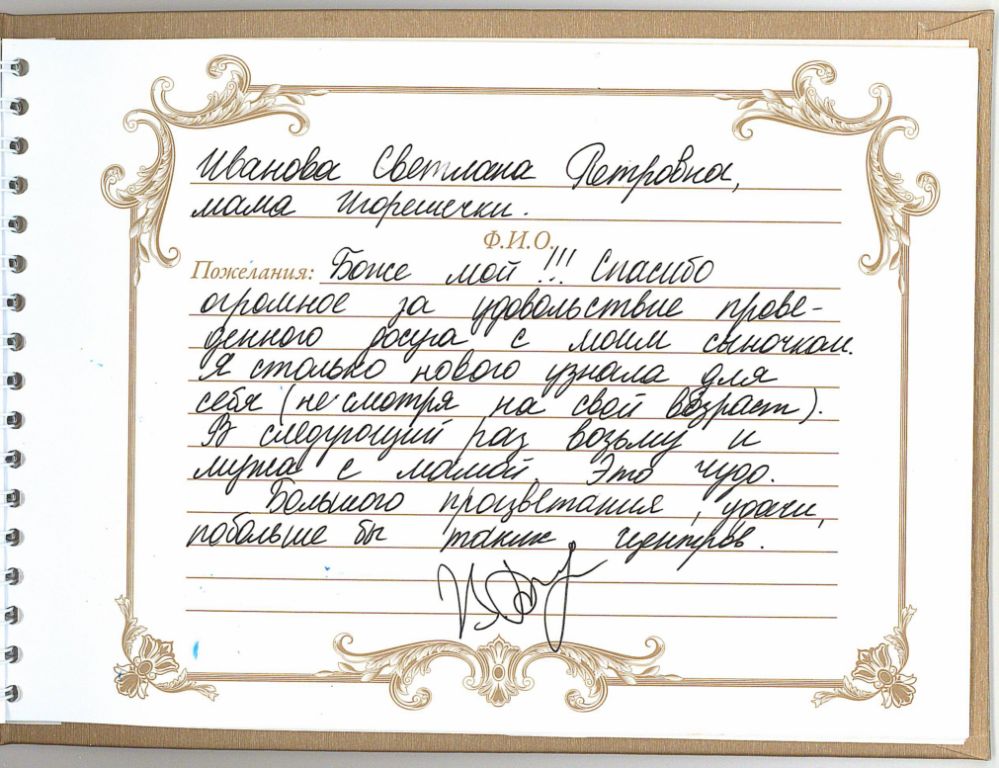 Иванова Светлана Петровна,
мама Игорешечки.
Ф.И.О.
Пожелания: Боже мой!!! Спасибо
огромное за удовольствие прове-
денного досуга с моим сыночком.
Я столько нового узнала для
себя (не смотря на свой возраст).
В следующий раз возьму и
мужа с мамой. Это чудо.
Большого процветания, удачи,
побольше бы таких центров.